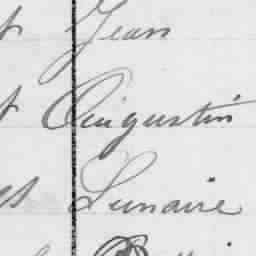 Jean
Augustin
Lunaire